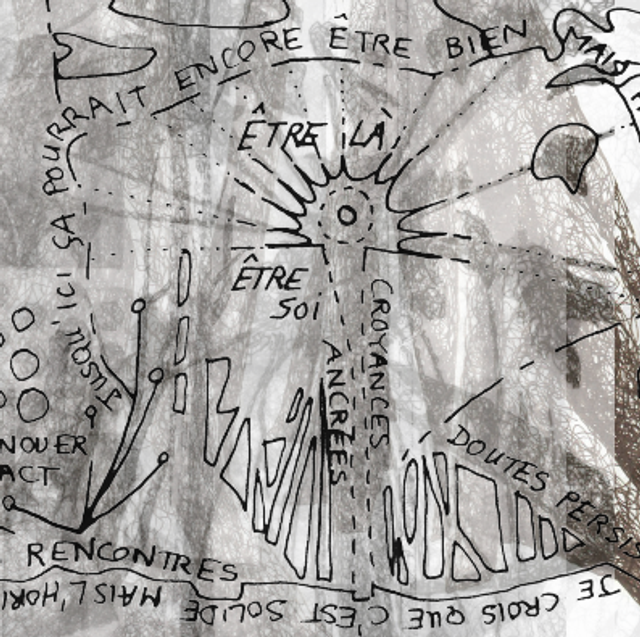 JUSQU'ICI ÇA POURRAIT ENCORE ÊTRE BIEN
MAIS
ÊTRE LÀ
ÊTRE
SOI
CROYANCES
ANCRÉES
NOUER
ACT
DOUTES PERSIS
RENCONTRES
JE CROIS QUE C'EST SOLIDE MAIS L'HORI